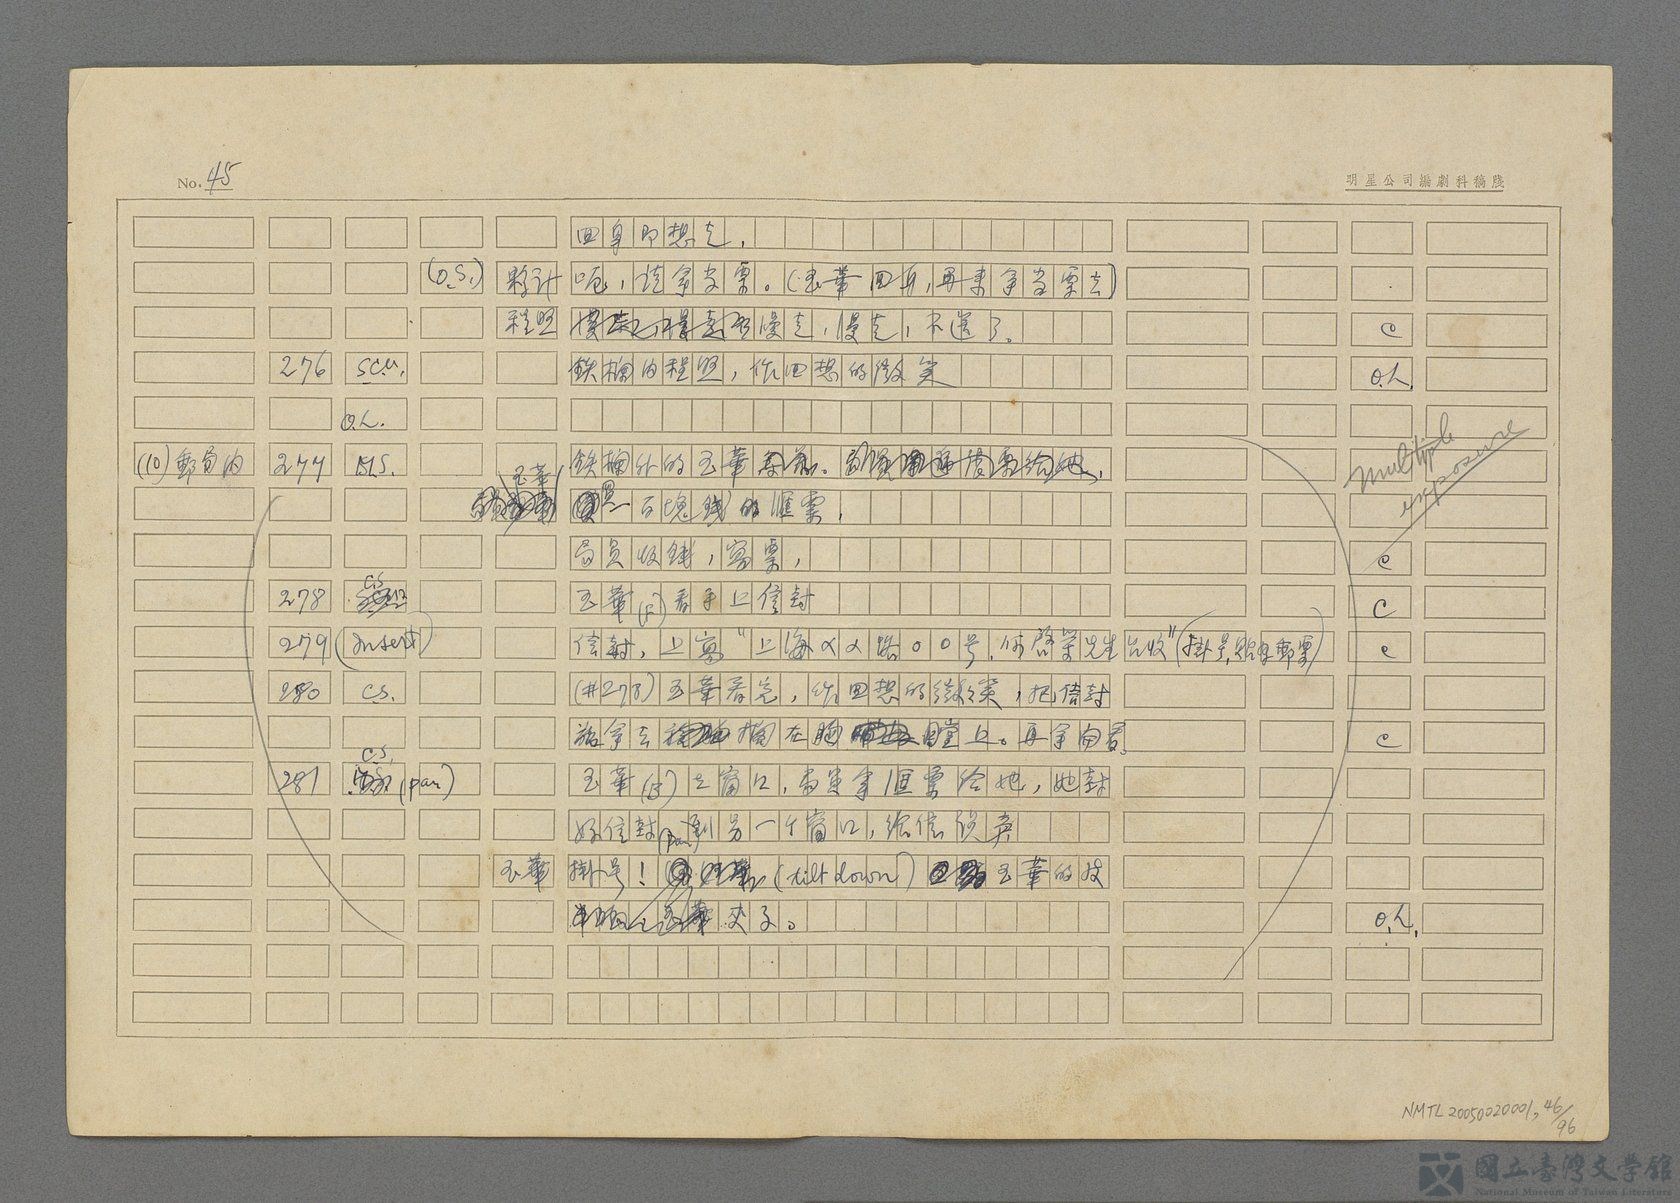 No. 45
明星公司編劇科稿牋
回身即想走，
(O.S.) 夥計 呃，請拿當票。(玉華回身，再來拿當票去)
程照 慢走，慢走，不送了。 C
276 SCU. 鉄柵內程照，作回想的微笑 O.L.
O.L.
(10) 郵局內 277 M.S. 鉄柵外的玉華
Multiple exposure
玉華 買一百塊錢的匯票，
局員收錢，寫票， C
278 CS 玉華(F)看手上信封 C
279 (Insert) 信封，上寫"上海××路○○号，何啓榮先生台收"(掛号，貼好郵票) C
280 CS. (#278) 玉華看完，作回想的微笑，把信封
拿去 在胸膛上。再拿向看 C
281 CS. (pan) 玉華 立窗口，局員拿匯票給她，她封
好信封(pan)到另一个窗口，給信
玉華 掛号！(tilt down) 玉華的皮
夾子。 O.L.
NMTL20050020001, 46/96
國立臺灣文學館
National Museum of Taiwan Literature